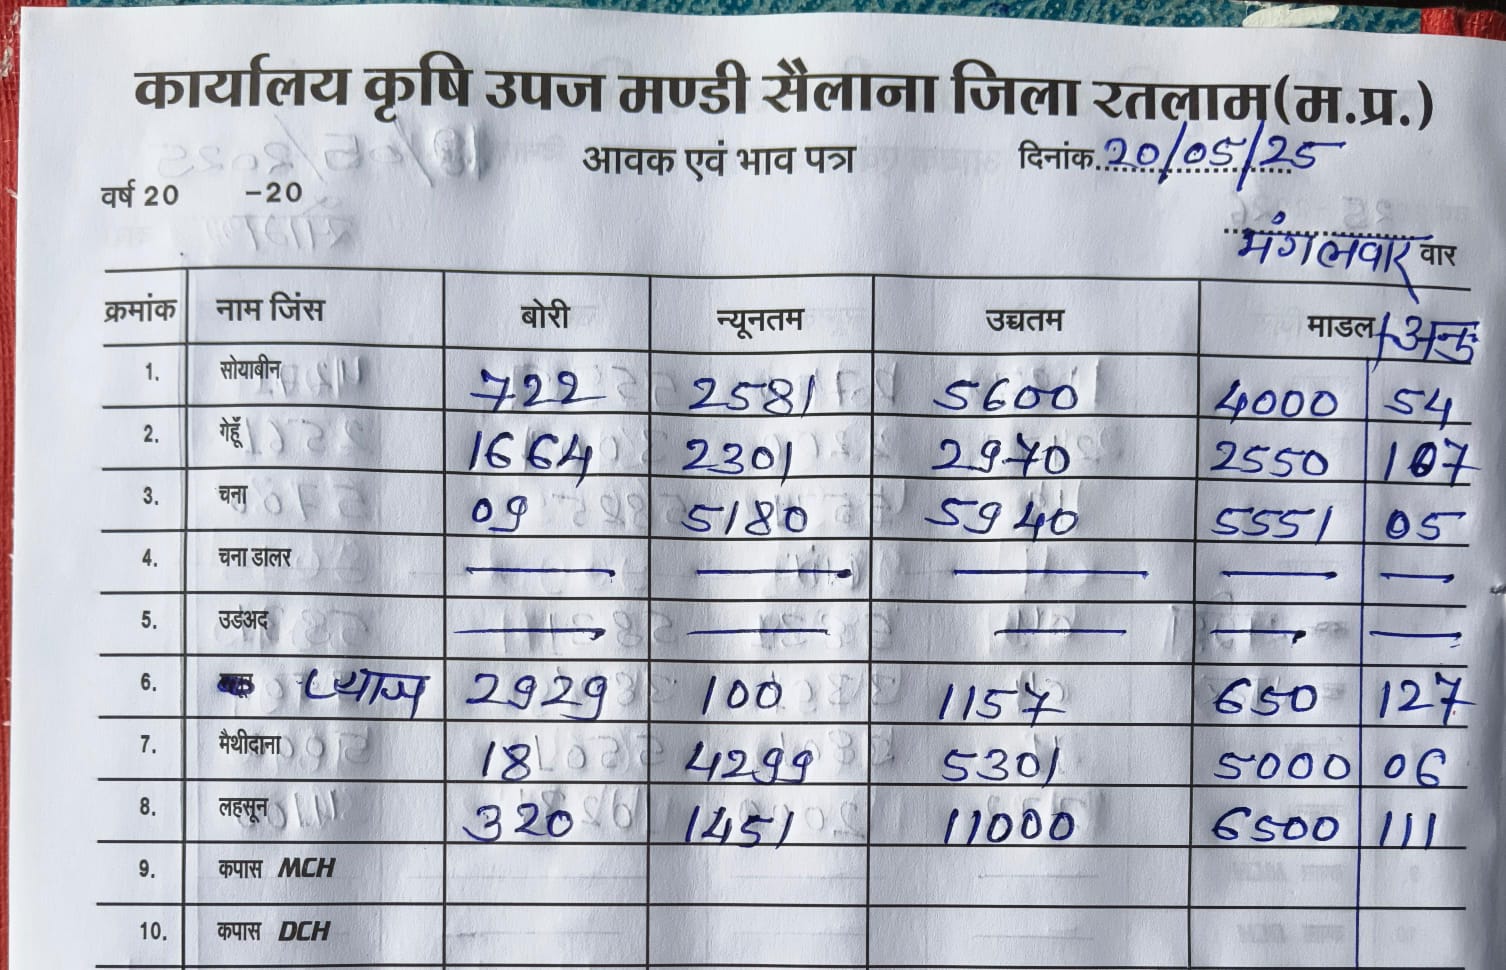 कार्यालय कृषि उपज मण्डी सैलाना जिला रतलाम(म.प्र.)
आवक एवं भाव पत्र दिनांक 20/05/25
वर्ष 20 -20
मंगलवार वार
क्रमांक नाम जिंस बोरी न्यूनतम उच्चतम माडल
1. सोयाबीन 722 2581 5600 4000 54
2. गेहूँ 1664 2301 2970 2550 107
3. चना 09 5180 5940 5551 05
4. चना डालर — — — — —
5. उडअद — — — — —
6. प्याज 2929 100 1157 650 127
7. मैथीदाना 18 4299 5301 5000 06
8. लहसून 320 1451 11000 6500 111
9. कपास MCH
10. कपास DCH